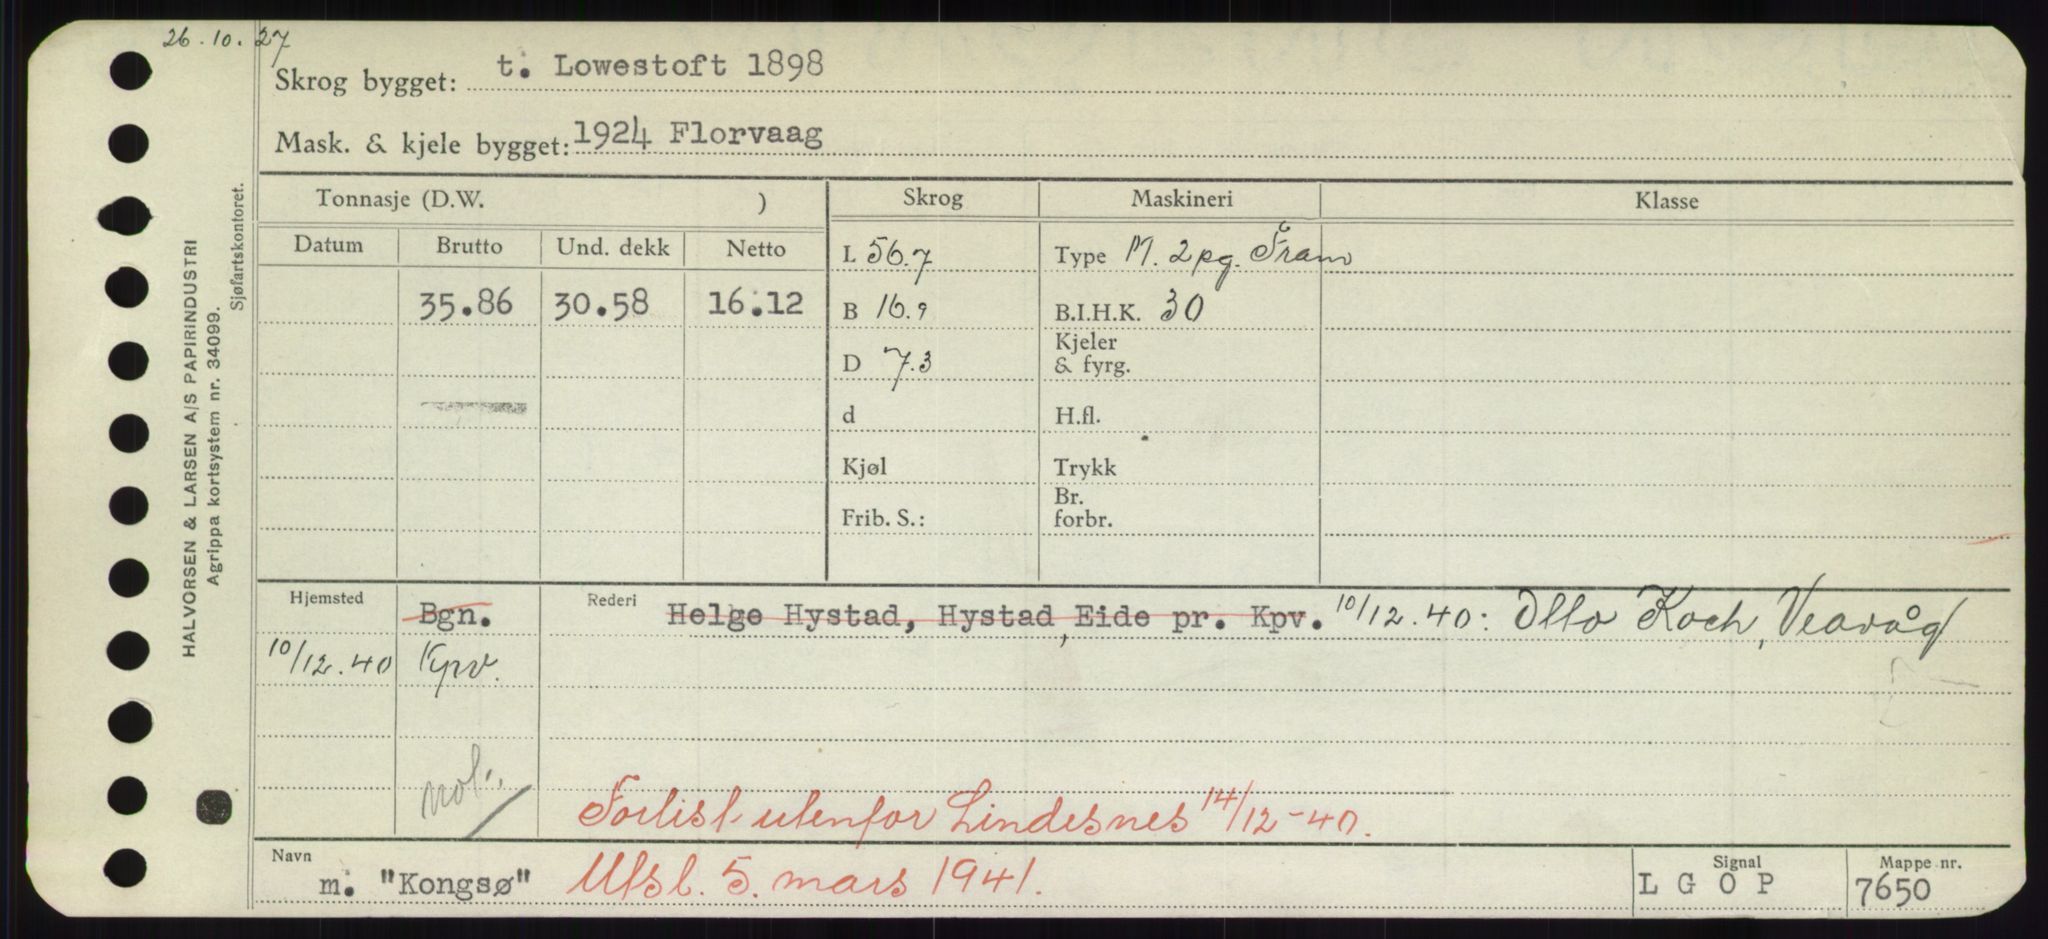 26.10.27
Skrog bygget: t. Lowestoft 1898
Mask. & kjele bygget: 1924 Florvaag
Tonnasje (D.W. ) Skrog Maskineri Klasse
Datum Brutto Und. dekk Netto L 56.7 Type M. 2 pg. Fram
35.86 30.58 16.12 B 16.9 B.I.H.K. 30
D 7.3 Kjeler & fyrg.
d H.fl.
Kjøl Trykk
Frib. S.: Br. forbr.
Hjemsted Bgn. Rederi Helge Hystad, Hystad, Eide pr. Kpv. 10/12.40: Otto Koch, Veavåg
10/12.40 Kpv.
Forlist utenfor Lindesnes 14/12-40.
Navn m. "Kongsø" Utsl. 5. mars 1941. Signal L G O P Mappe nr. 7650
HALVORSEN & LARSEN A/S PAPIRINDUSTRI
Agrippa kortsystem nr. 34099.
Sjøfartskontoret.